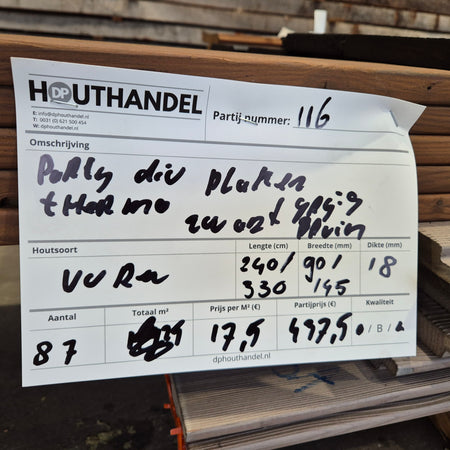 HOUTHANDEL
DP
E: info@dphouthandel.nl
T: 0031 (0) 621 500 454
W: dphouthandel.nl
Partij nummer: 116
Omschrijving
Partij div platen
thermo zwart grijs
bruin
Houtsoort Lengte (cm) Breedte (mm) Dikte (mm)
vuren 240/ 90/ 18
330 145
Aantal Totaal m² Prijs per M² (€) Partijprijs (€) Kwaliteit
87 17,5 497,5 / B /
dphouthandel.nl